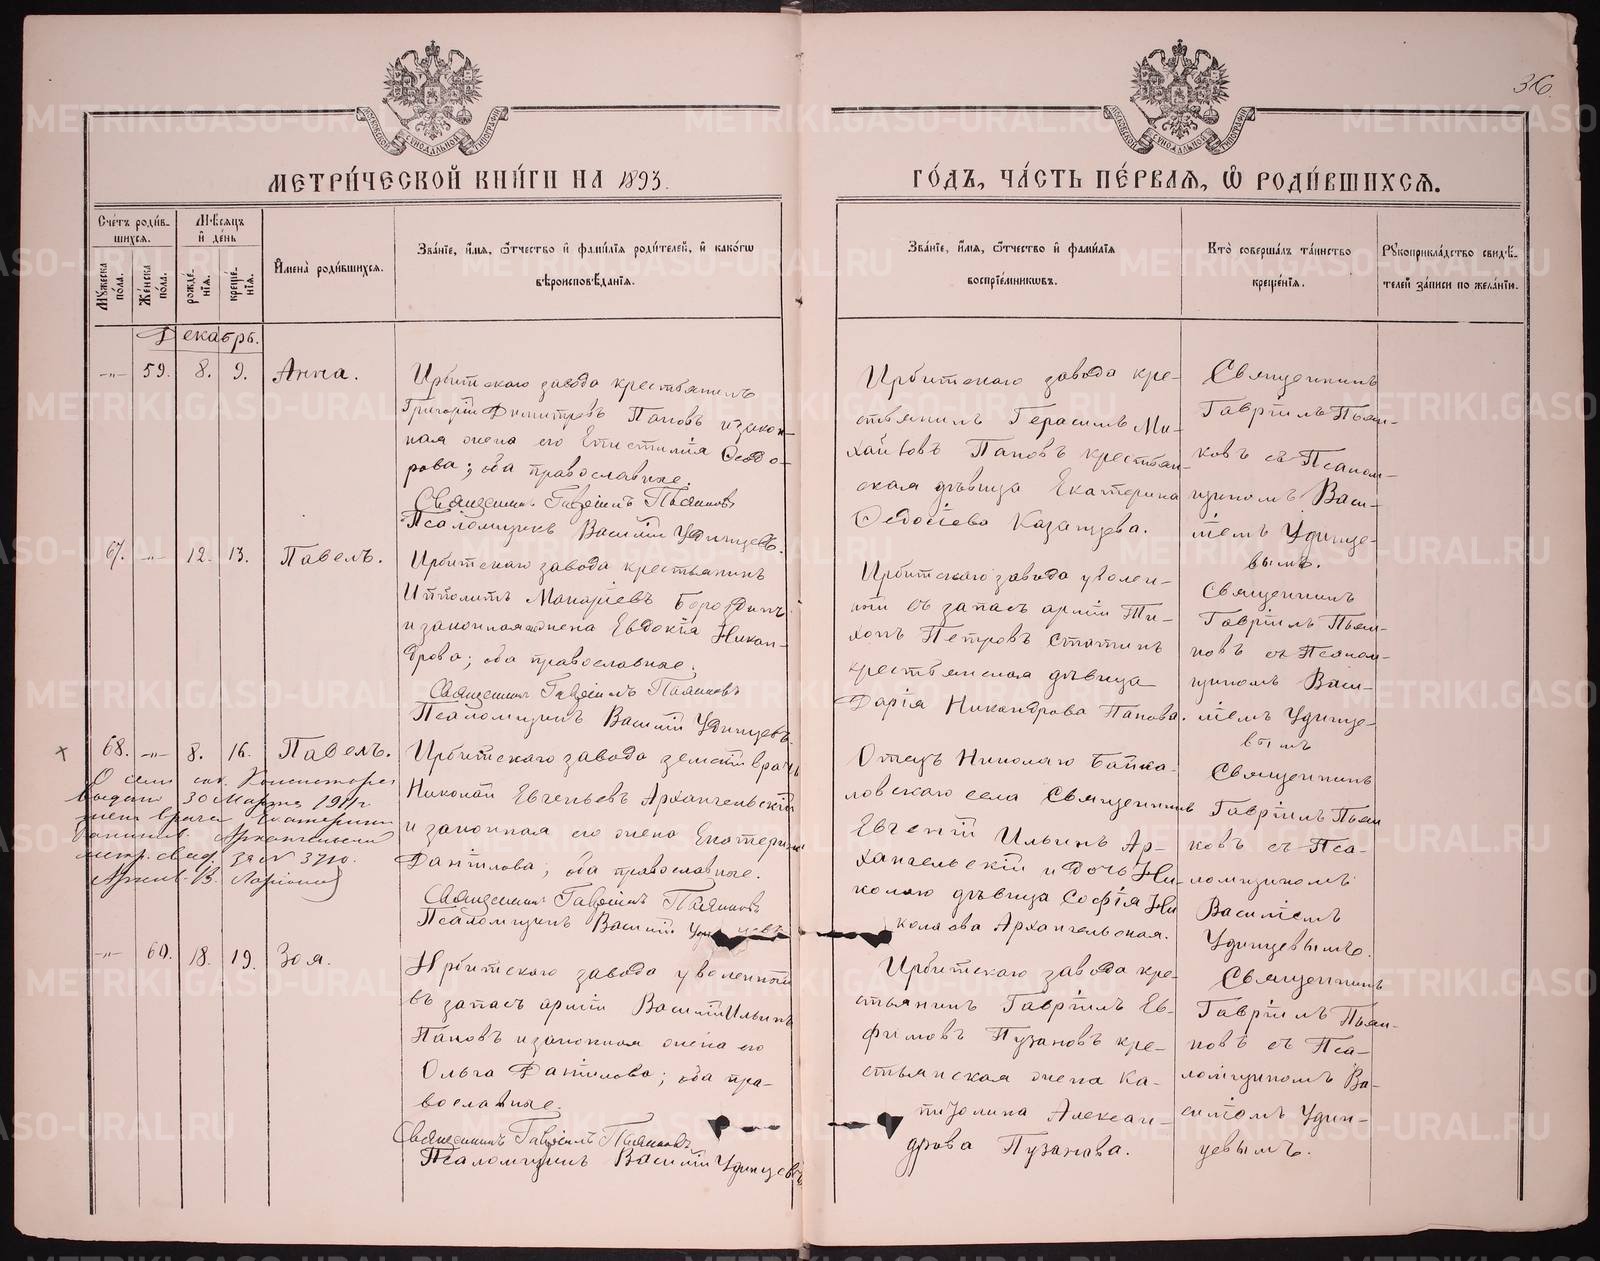 36.
МЕТРИ́ЧЕСКОЙ КНИ́ГИ НА 1893.
ГО́ДЪ, ЧА́СТЬ ПЕ́РВАЯ, Ѡ РОДИ́ВШИХСЯ.
Сче́тъ роди́в-
шихся.
Му́жеска по́ла.
Же́нска по́ла.
Мѣ́сяцъ
и҆ де́нь
рожде́нія.
креще́нія.
И҆мена̀ роди́вшихся.
Зва́нїе, и҆́мя, ѻ҆́тчество и҆ фами́лїя роди́телей, и҆ како́гѡ
вѣроисповѣ́данїя.
Зва́нїе, и҆́мя, ѻ҆́тчество и҆ фами́лїя
воспрїе́мникѡвъ.
Кто̀ соверша́лъ та́инство
креще́нїя.
Рукоприкла́дство свидѣ́-
телей за́писи по жела́нїю.
Декабрь.
-"- 59. 8. 9. Анна.
Ирбитскаго завода крестьянинъ
Григорій Димитріевъ Пановъ и закон-
ная жена его Епистимія Ѳедо-
рова; оба православные.
Священникъ Гавріилъ Пьянковъ
Псаломщикъ Василій Удинцевъ.
Ирбитскаго завода кре-
стьянинъ Герасимъ Ми-
хайловъ Пановъ крестьян-
ская дѣвица Екатерина
Ѳедосіева Казанцева.
Священникъ
Гавріилъ Пьян-
ковъ съ Псалом-
щикомъ Васи-
ліемъ Удинце-
вымъ.
67. -"- 12. 13. Павелъ.
Ирбитскаго завода крестьянинъ
Ипполитъ Макаріевъ Бороздинъ
и законная жена Евдокія Никан-
дрова; оба православные.
Священникъ Гавріилъ Пьянковъ
Псаломщикъ Василій Удинцевъ.
Ирбитскаго завода уволен-
ный въ запасъ арміи Ти-
хонъ Петровъ Статинъ
крестьянская дѣвица
Дарія Никандрова Панова.
Священникъ
Гавріилъ Пьян-
ковъ съ Псалом-
щикомъ Васи-
ліемъ Удинце-
вымъ
× 68. -"- 8. 16. Павелъ.
30 Марта 1911 г.
врача Екатерины
метр. свид. за № 3710.
Ирбитскаго завода земскій врачъ
Николай Евгеньевъ Архангельскій
и законная его жена Екатерина
Данілова; оба православные.
Священникъ Гавріилъ Пьянковъ
Псаломщикъ Василій Удинцевъ
Отецъ Николаю Байка-
ловскаго села Священникъ
Евгеній Ильинъ Ар-
хангельскій и дочь Ни-
колаю дѣвица Софія Ни
колаова Архангельская.
Священникъ
Гавріилъ Пьян
ковъ съ Пса-
ломщикомъ
Василіемъ
Удинцевымъ.
-"- 60. 18. 19. Зоя.
Ирбитскаго завода уволенный
въ запасъ арміи Василій Ильинъ
Пановъ и законная жена его
Ольга Данілова; оба пра-
вославные.
Священникъ Гавріилъ Пьянковъ
Псаломщикъ Василій Удинцевъ
Ирбитскаго завода кре-
стьянинъ Гавріилъ Ев-
фимовъ Пузановъ кре-
стьянская жена Ка-
питолина Алексан-
дрова Пузанова.
Священникъ
Гавріилъ Пьян-
ковъ съ Пса-
ломщикомъ Ва-
силіемъ Удин-
цевымъ.
METRIKI.GASO-URAL.RU